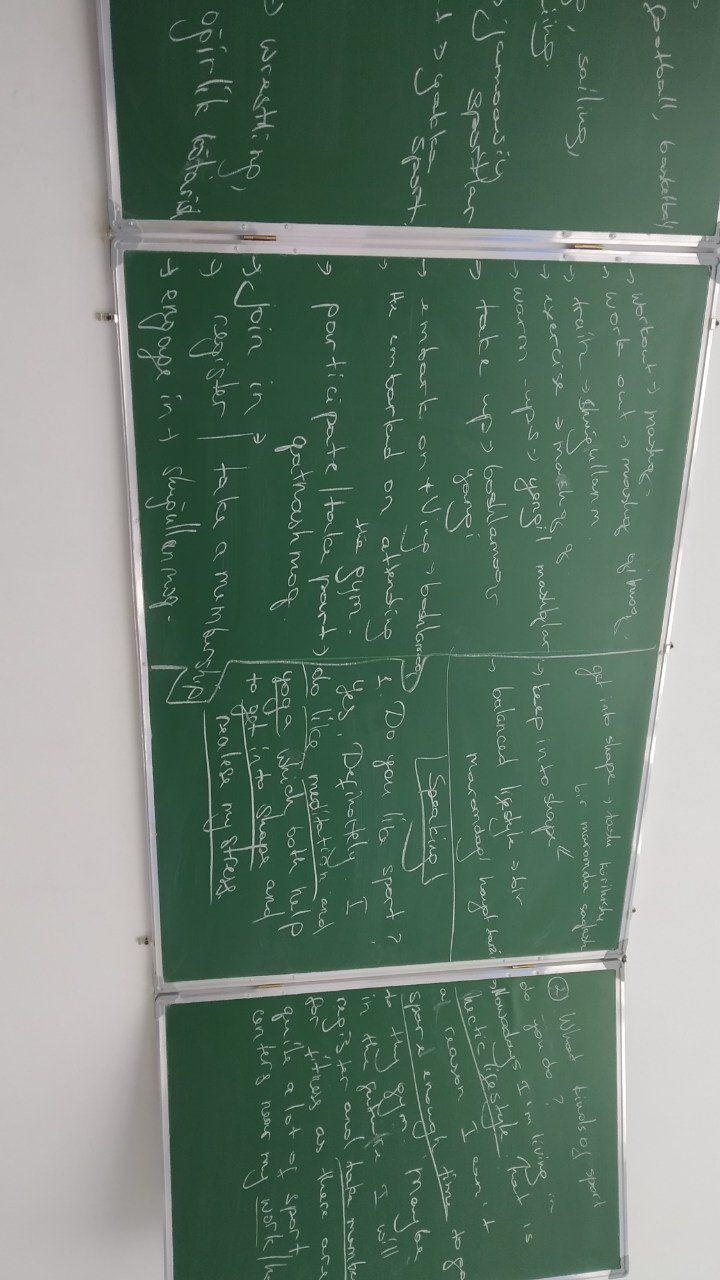 football, basketball
sailing,
→ jamoaviy
sportlar
→ yakka
sport.
→ wrestling,
og'irlik ko'tarish
→ workout → mashq.
→ work out → mashq qilmoq.
→ train → shug'ullanm.
→ exercise → mashq q
→ warm-ups → yengil mashqlar
→ take up → boshlamoq
yangi
→ embark on + Ving → boshlamoq
→ He embarked on attending
the gym.
→ participate / take part →
qatnashmoq.
→ Join in →
→ register | take a membership
→ engage in → shug'ullanmoq.
get into shape →
bir maromda saqlash
→ keep into shape
→ balanced lifestyle → bir
maromdagi hayot tarzi
Speaking
1. Do you like sport?
Yes, Definitely I
do like meditation and
yoga which both help
to get into shape and
realese my stress
② What kinds of sport
do you do?
→ Nowadays I'm living in
hectic lifestyle that is
a reason I can't
spare enough time to go
to thy gym. Maybe
in the future I will
register and take membe
for fitness as there are
quite a lot of sport
centers near my work/ho